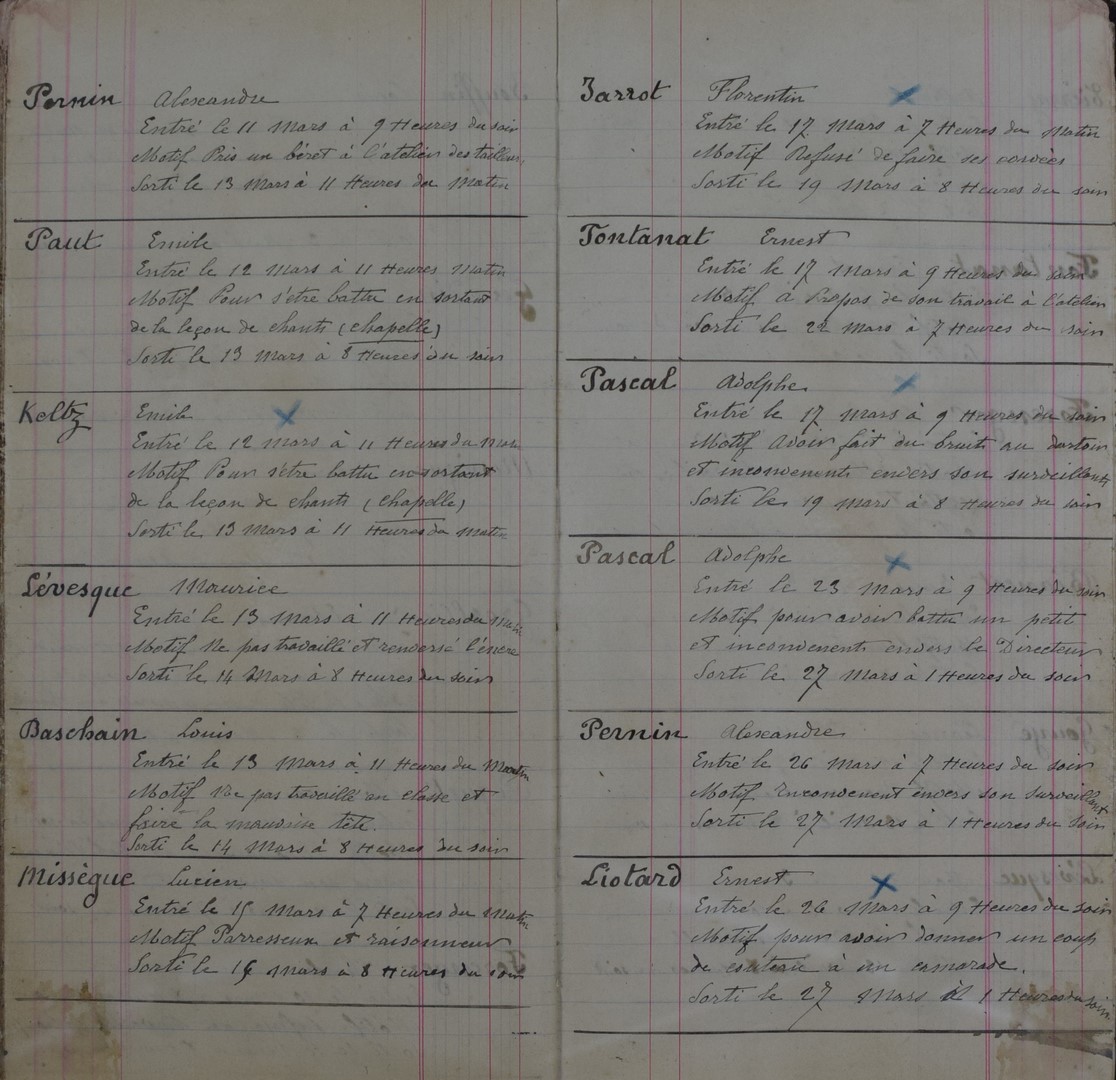 Pernin Alexandre
Entré le 11 Mars à 9 Heures du soir
Motif Pris un béret à l'atelier des tailleurs
Sorti le 13 Mars à 11 Heures du Matin
Paut Emile
Entré le 12 Mars à 11 Heures Matin
Motif Pour s'être battu en sortant
de la leçon de chants (chapelle)
Sorti le 13 Mars à 8 Heures du soir
Keltz Emile
Entré le 12 Mars à 11 Heures du Matin
Motif Pour s'être battu en sortant
de la leçon de chants (chapelle)
Sorti le 13 Mars à 11 Heures du Matin
Lévesque Maurice
Entré le 13 Mars à 11 Heures du Matin
Motif Ne pas travaillé et renversé l'encre
Sorti le 14 Mars à 8 Heures du soir
Baschain Louis
Entré le 13 Mars à 11 Heures du Matin
Motif Ne pas travaillé en classe et
faire la mauvaise tête.
Sorti le 14 Mars à 8 Heures du soir
Missègue Lucien
Entré le 15 Mars à 7 Heures du Matin
Motif Parresseux et raisonneur
Sorti le Mars à 8 Heures du soir
Jarrot Florentin
Entré le 17 Mars à 7 Heures du Matin
Motif Refusé de faire ses corvées
Sorti le 19 Mars à 8 Heures du soir
Tontanat Ernest
Entré le 17 Mars à 9 Heures du soir
Motif à Propos de son travail à l'atelier
Sorti le 22 Mars à 7 Heures du soir
Pascal Adolphe
Entré le 17 Mars à 9 Heures du soir
Motif avoir fait du bruit au dortoir
et inconvenents envers son surveillants
Sorti le 19 Mars à 8 Heures du soir
Pascal Adolphe
Entré le 23 Mars à 9 Heures du soir
Motif pour avoir battu un petit
et inconvenents envers le Directeur
Sorti le 27 Mars à 1 Heures du soir
Pernin Alexandre
Entré le 26 Mars à 7 Heures du soir
Motif Inconvenent envers son surveillant
Sorti le 27 Mars à 1 Heures du soir
Liotard Ernest
Entré le 26 Mars à 9 Heures du soir
Motif pour avoir donner un coup
de couteau à un camarade.
Sorti le 27 Mars à 1 Heures du soir